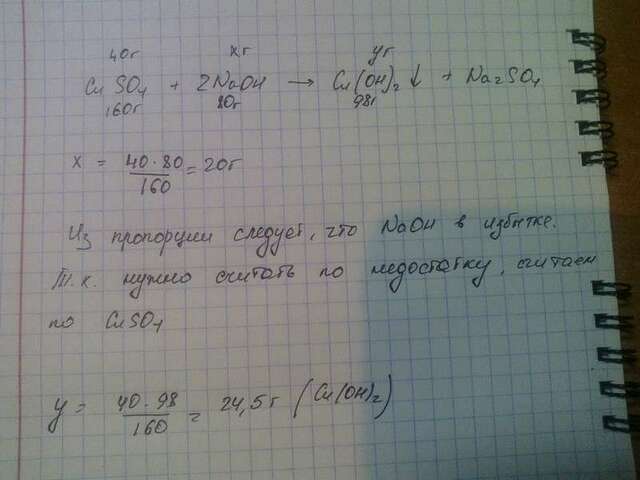 40г xг yг
CuSO₄ + 2NaOH → Cu(OH)₂↓ + Na₂SO₄
160г 80г 98г
x = 40·80/160 = 20г
Из пропорции следует, что NaOH в избытке.
Т.к. нужно считать по недостатку, считаем
по CuSO₄
y = 40·98/160 = 24,5г (Cu(OH)₂)